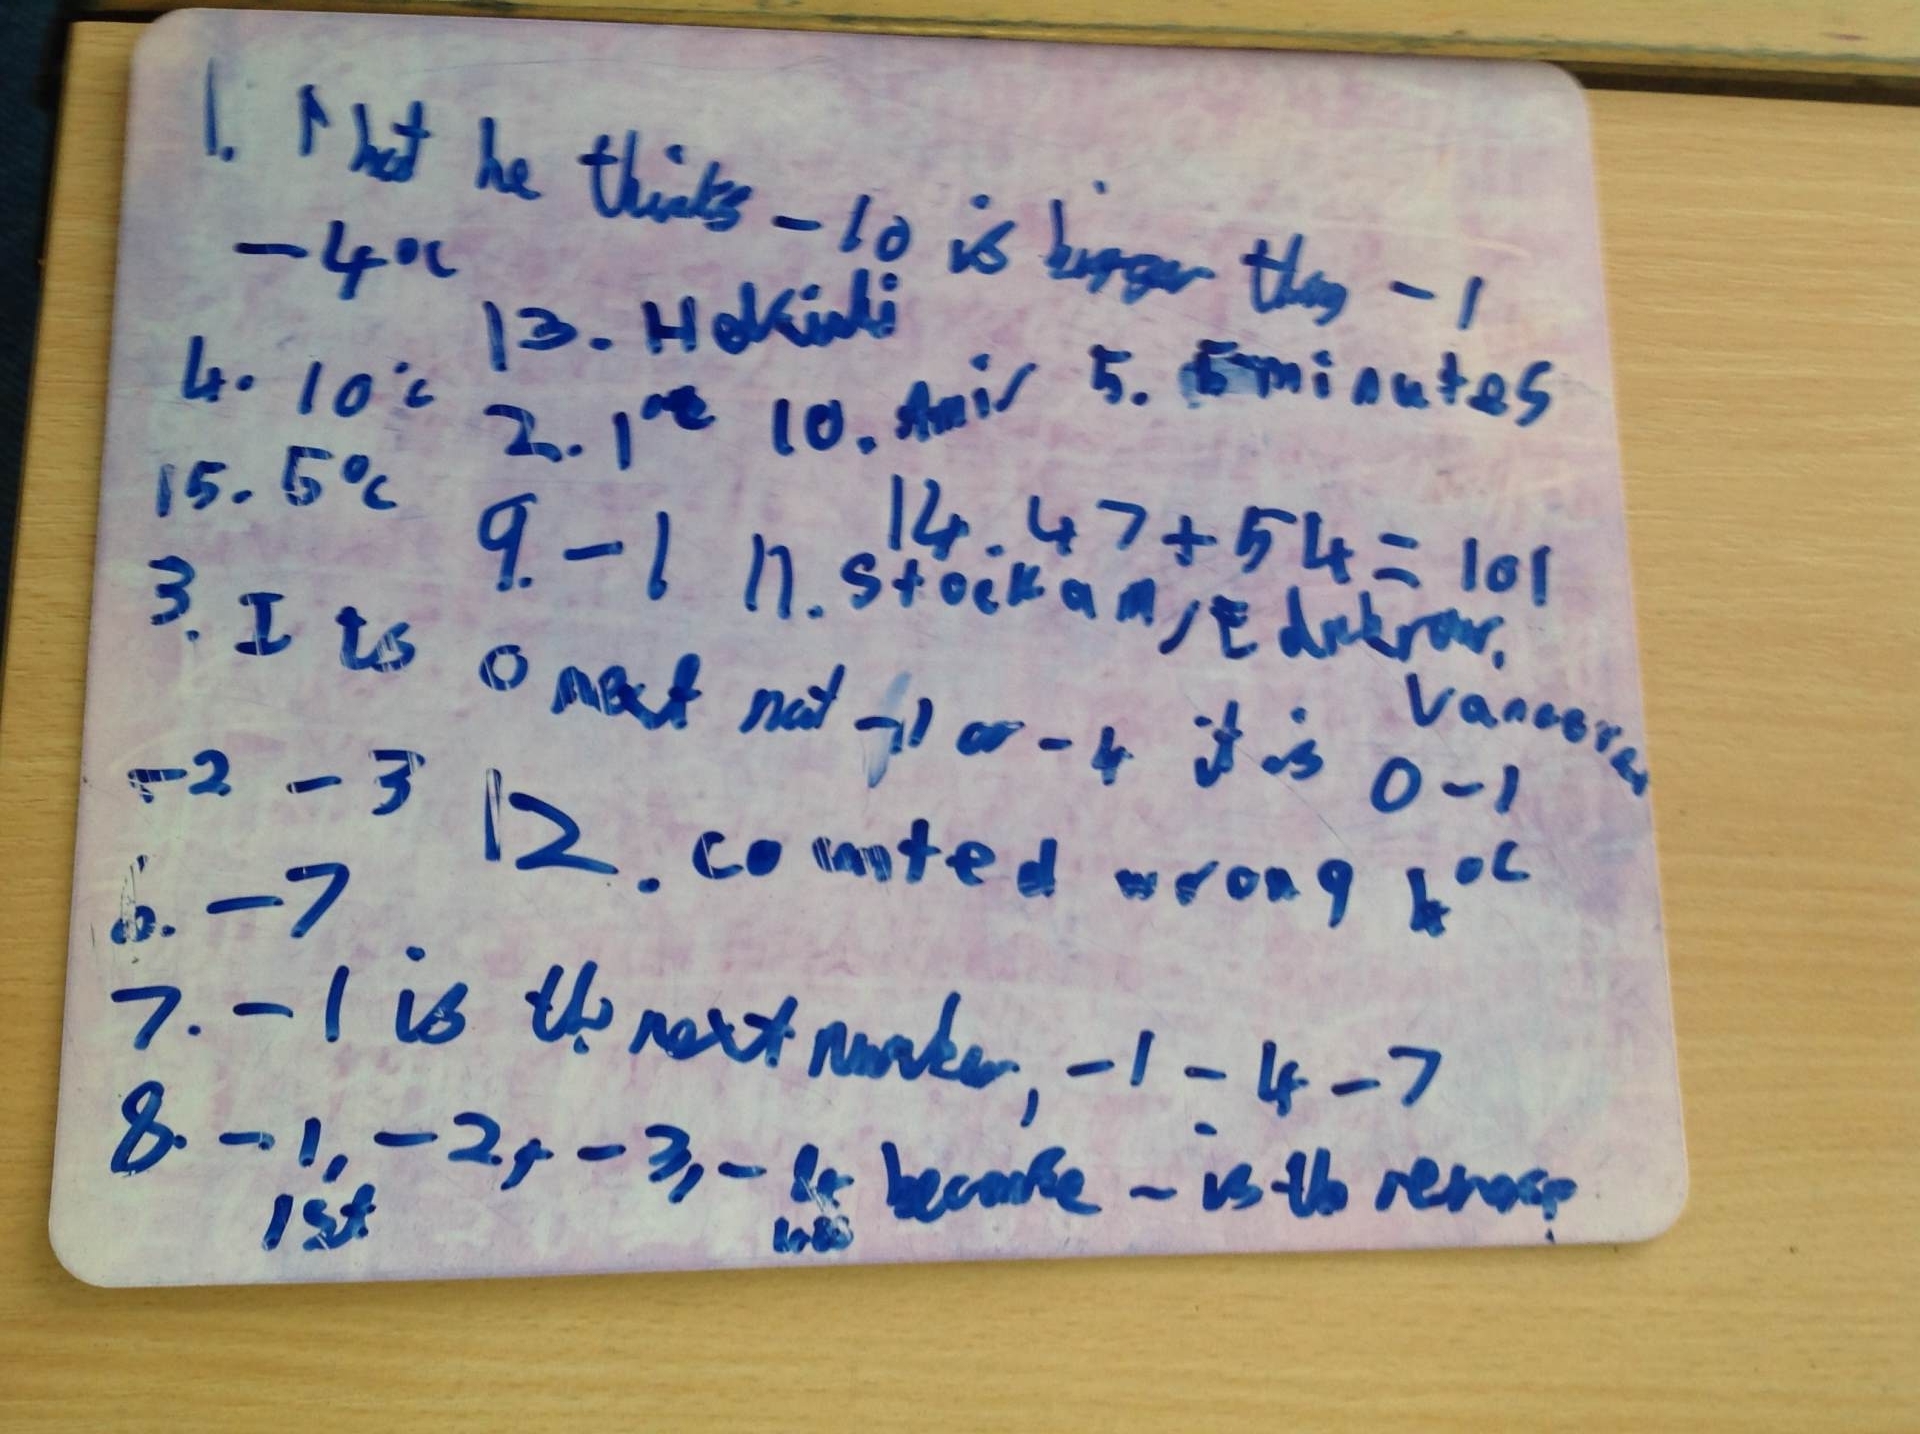 1. that he thinks -10 is bigger than -1
-4°c
13. Hokiuki
4. 10°c 2. 1°c 10. Amir 5. 5 minutes
15. 5°c
9. -1 14. 47+54=101
11. Stockam,
3. I ts 0 next not -1 or -4 it is 0 -1
-2 -3
12. counted wrong 4°c
6. -7
7. -1 is the next number, -1 -4 -7
8. -1, -2, -3, -4 because - is the
1st